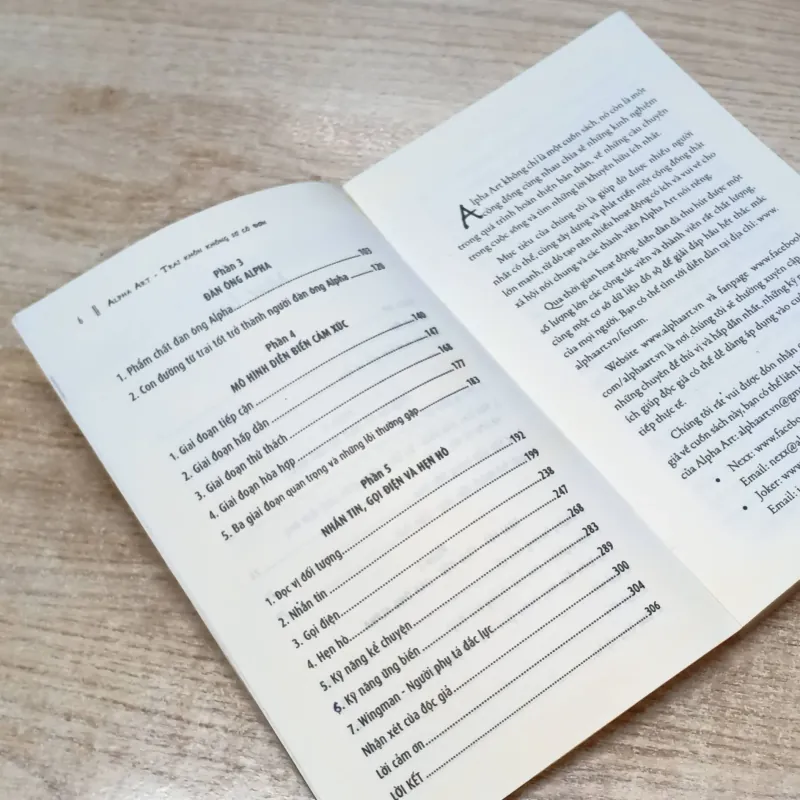 6 || ALPHA ART - TRAI KHÔN KHÔNG SỢ CÔ ĐƠN
Phần 3
ĐÀN ÔNG ALPHA
1. Phẩm chất đàn ông Alpha 103
2. Con đường từ trai tốt trở thành người đàn ông Alpha 120
Phần 4
MÔ HÌNH DIỄN BIẾN CẢM XÚC
1. Giai đoạn tiếp cận 140
2. Giai đoạn hấp dẫn 147
3. Giai đoạn thử thách 168
4. Giai đoạn hòa hợp 177
5. Ba giai đoạn quan trọng và những lỗi thường gặp 183
Phần 5
NHẮN TIN, GỌI ĐIỆN VÀ HẸN HÒ
1. Đọc vị đối tượng 192
2. Nhắn tin 199
3. Gọi điện 238
4. Hẹn hò 247
5. Kỹ năng kể chuyện 268
6. Kỹ năng ứng biến 283
7. Wingman - Người phụ tá đắc lực 289
Nhận xét của độc giả 300
Lời cảm ơn 304
LỜI KẾT 306
Alpha Art không chỉ là một cuốn sách, nó còn là một
cộng đồng cùng nhau chia sẻ những kinh nghiệm
trong quá trình hoàn thiện bản thân, về những câu chuyện
trong cuộc sống và tìm những lời khuyên hữu ích nhất.
Mục tiêu của chúng tôi là giúp đỡ được nhiều người
nhất có thể, cùng xây dựng và phát triển một cộng đồng thật
lớn mạnh, từ đó tạo nên nhiều hoạt động có ích và vui vẻ cho
xã hội nói chung và các thành viên Alpha Art nói riêng.
Qua thời gian hoạt động, diễn đàn đã thu hút được một
số lượng lớn các cộng tác viên và thành viên rất chất lượng,
cùng một cơ sở dữ liệu đồ sộ để giải đáp hầu hết thắc mắc
của mọi người. Bạn có thể tìm tới diễn đàn tại địa chỉ: www.
alphaart.vn/forum.
Website www.alphaart.vn và fanpage www.facebook
com/alphaart.vn là nơi chúng tôi sẽ thường xuyên cập
những chuyên đề thú vị và hấp dẫn nhất, những kỹ
ích giúp độc giả có thể dễ dàng áp dụng vào cu
tiếp thực tế.
Chúng tôi rất vui được đón nhận
giả về cuốn sách này, bạn có thể liên h
của Alpha Art: alphaart.vn@gm
• Nexx: www.faceb
Email: nexx@a
• Joker: www.
Email: j